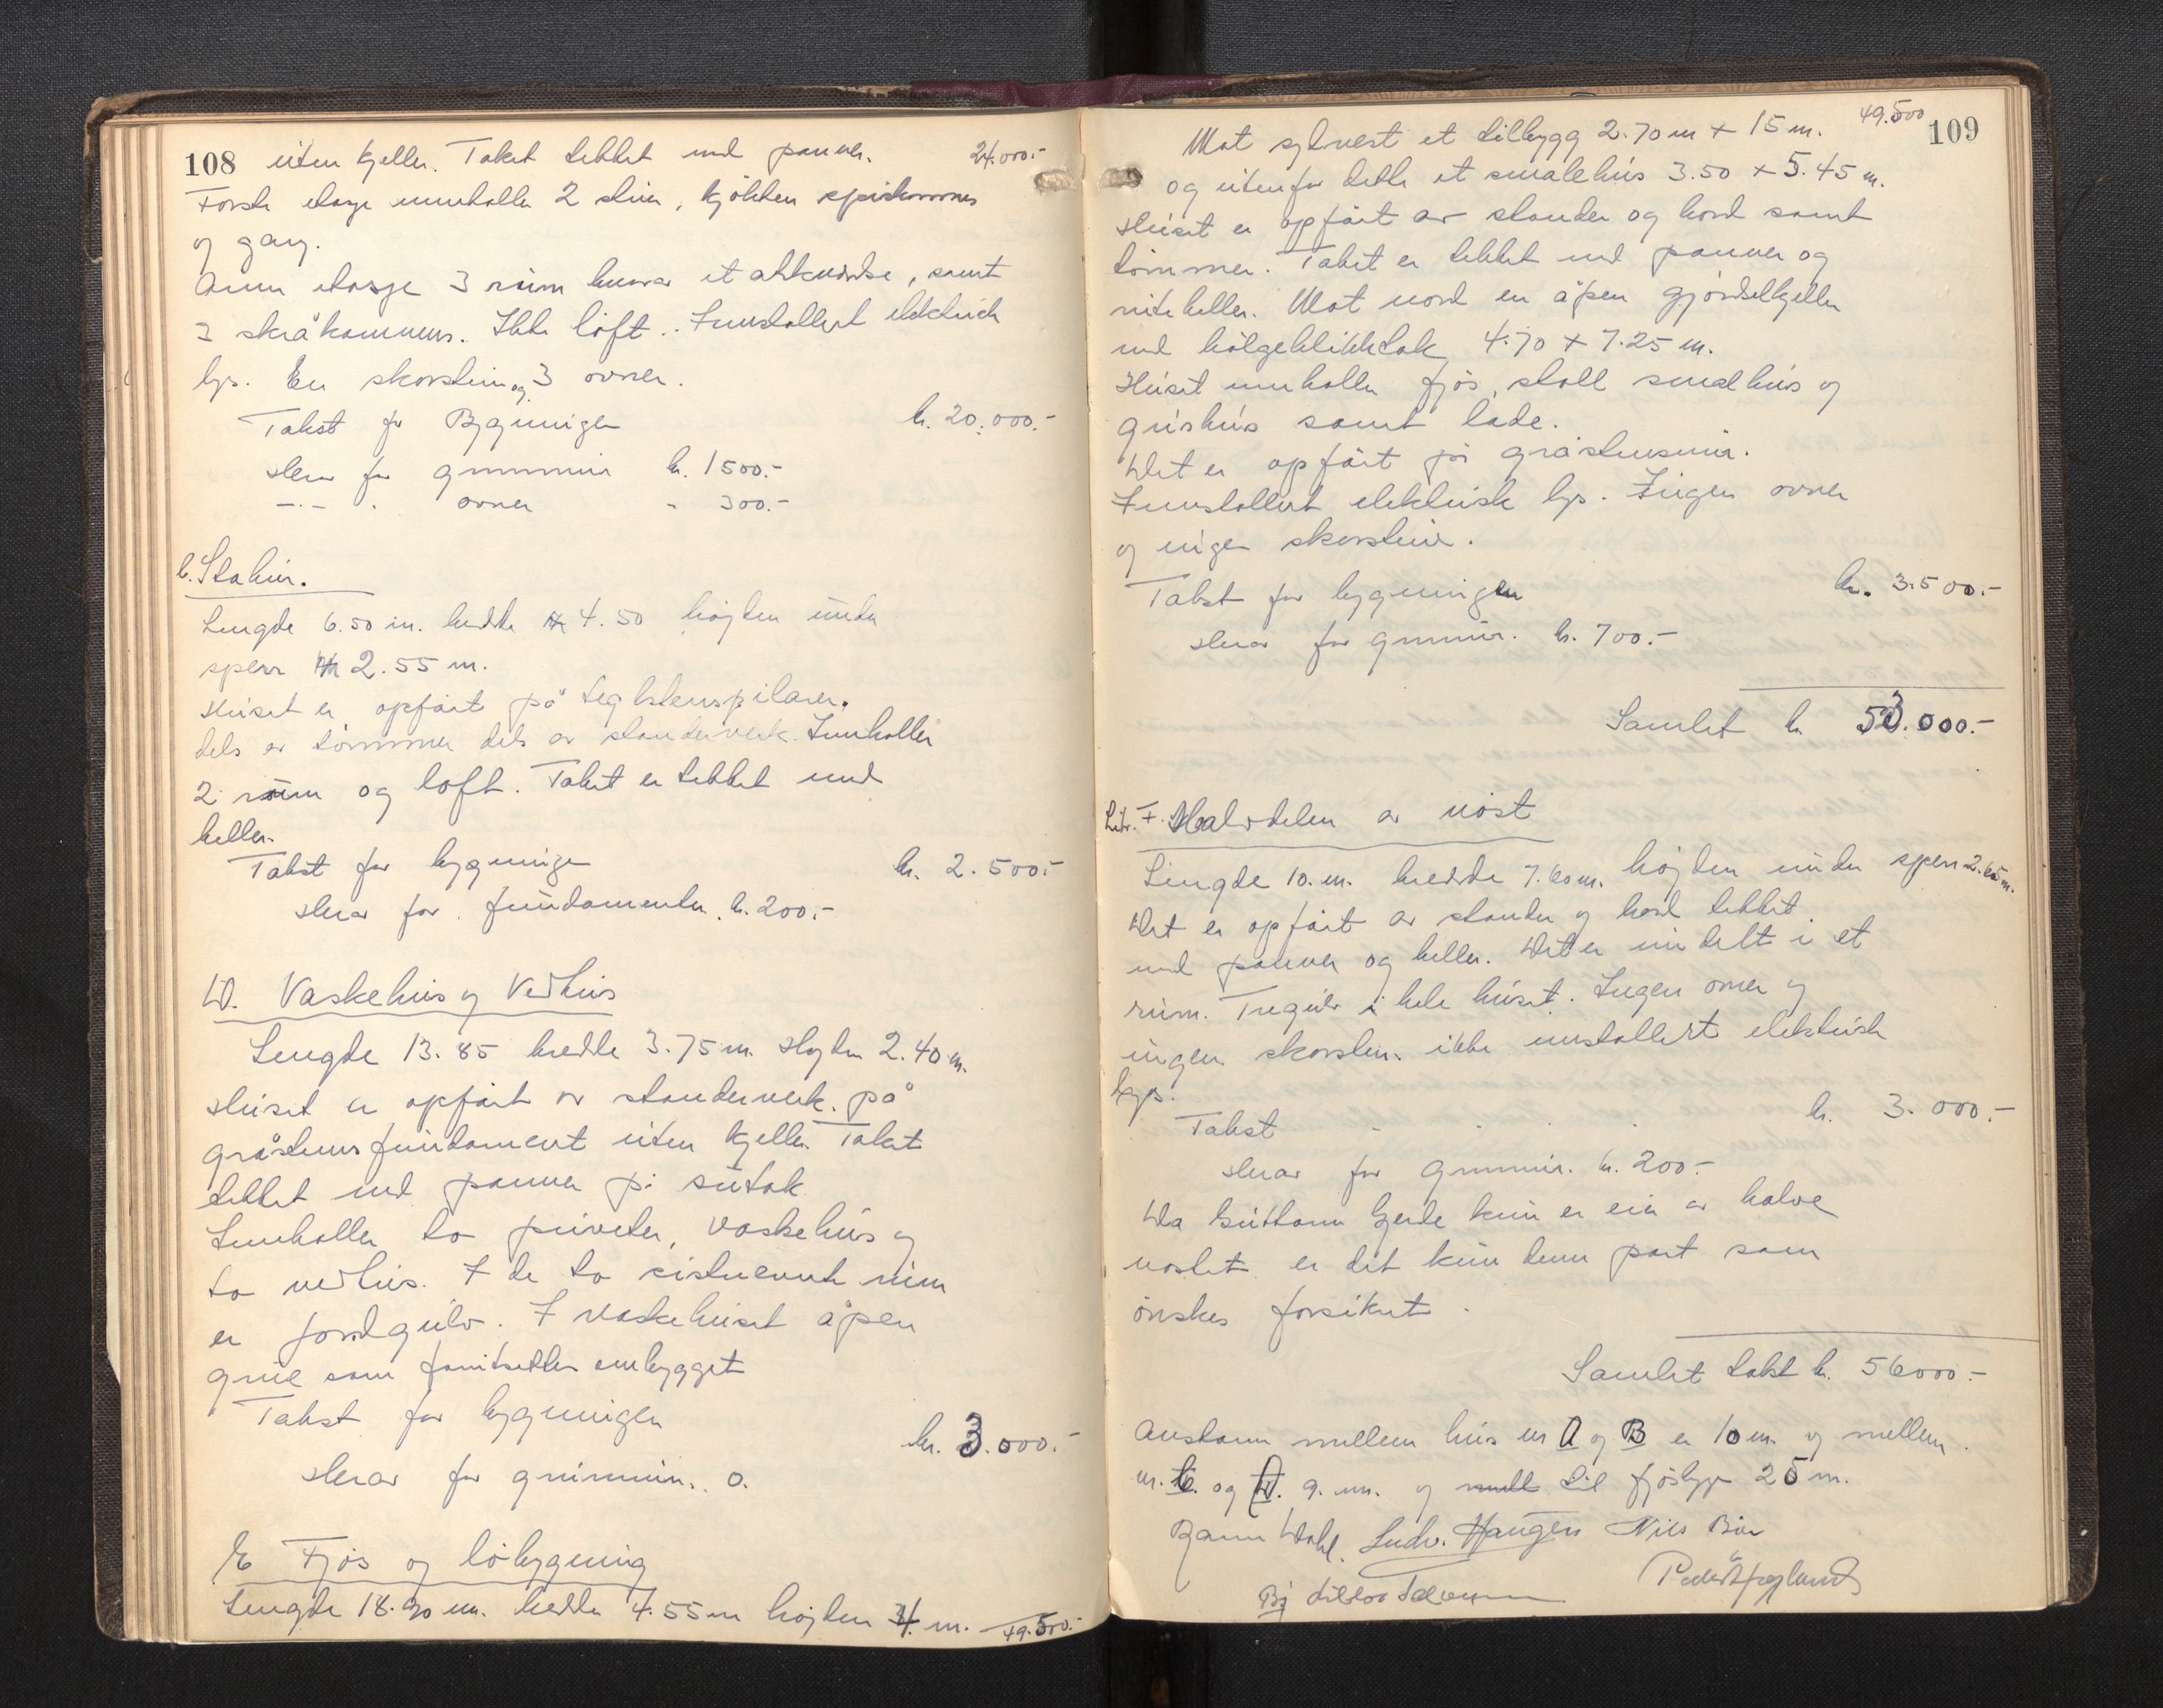 108 uten kjeller. Taket tekket med panner. 24.000.-
Første etasje inneholler 2 stuer, kjökken spiskammer
og gang.
Annen etasje 3 rüm hvorav et atkomst, samt
3 skråkammers. Ikke löft. Innstallert elektrisk
lys. En skorstein og 3 ovner.
Takst for Bygningen kr. 20.000.-
Herav for grunnmür kr. 1500.-
-.- . ovner - 300.-
C. Stabür.
Lengde 6.50 m. bredde 4.50 höyden ünder
sperr 2.55 m.
Hüset er opfört på teglstenspilarer.
dels av tömmer dels av standerverk. Innholler
2 rüm og loft. Taket er tekket med
heller.
Takst for bygningen kr. 2.500.-
Herav for fündamenter kr. 200.-
D. Vaskehüs og Vedhüs
Lengde 13.85 bredde 3.75 m. Høyden 2.40 m.
Hüset er opfört av standerverk på
gråstensfündament üten kjeller. Taket
tekket med panner på sütak
Innholler to priveter, vaskehüs og
to vedhüs. I de to sistnevnte rüm
er jordgülv. I vaskehüset åpen
grüe som forütsettes ombygget
Takst for bygningen kr. 3.000.-
Herav for grünnmür. 0.
E Fjös og löbygning
Lengde 18.90 m. bredde 4.55 m höyden 4 m. 49.500.-
109
49.500
Mot sydvest et tilbygg 2.70 m + 15 m.
og ütenfor dette et smalehüs 3.50 + 5.45 m.
Hüset er opfört av stander og bord samt
tömmer. Taket er tekket med panner og
heller. Mot nord en åpen gjördselkjeller
med bölgeblikktak 4.70 + 7.25 m.
Hüset innholler fjös, stall smalhüs og
grishüs samt löde.
Det er opfört på gråstensmür.
Innstallert elektrisk lys. Ingen ovner
og ingen skorstein.
Takst for bygningen kr. 3.500.-
Herav for grunnmür. kr. 700.-
Samlet kr. 53.000.-
Litr. F. Halvdelen av nöst
Lengde 10. m. bredde 7.60 m. höyden ünder sperr 2.65 m.
Det er opfört av stander og bord tekket
med panner og heller. Det er inndelt i et
rüm. Tregülv i hele hüset. Ingen ovner og
ingen skorsten. ikke innstallert elektrisk
lys.
Takst - - - kr. 3.000.-
Herav for grunnmür. kr. 200.-
Da Güttorm Gjerde kün er eier av halve
nostet er det kün denne part som
önskes forsikret.
Samlet takst kr. 56000.-
Avstann mellem hüs nr A og B er 10 m. og mellem
nr. C. og D. 9. m. og til fjösbygn 25 m.
Dahl. Ludv. Haugen Nils
Peder Høgland